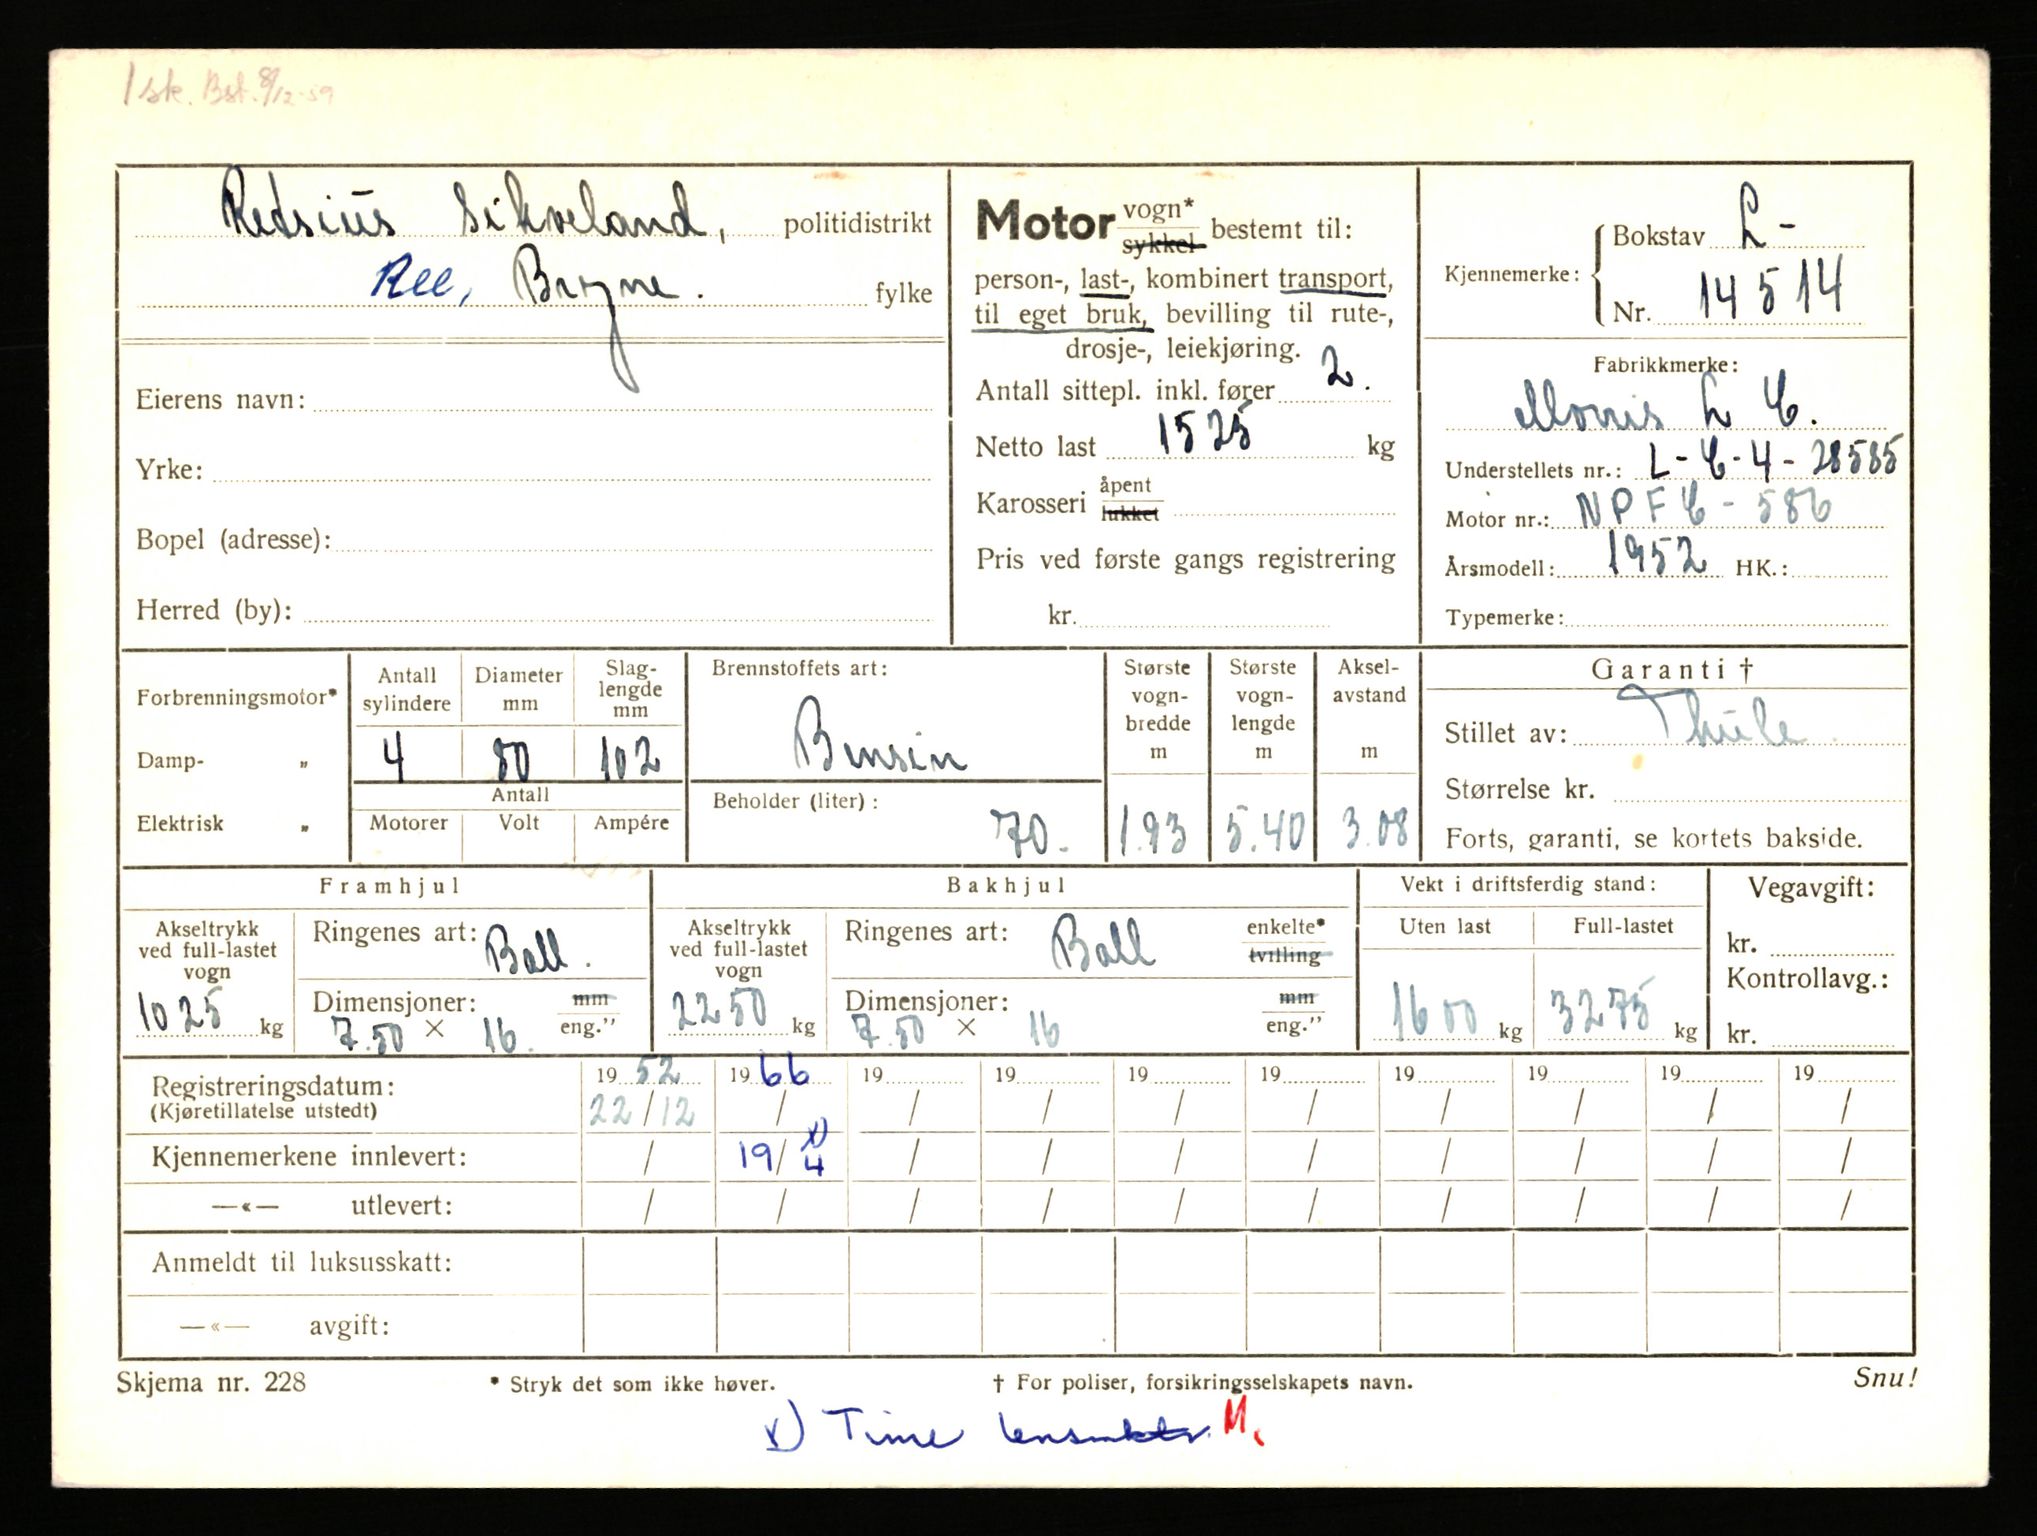 1 sk. Bst. 8/12-59
Retsius Sikveland, politidistrikt
Ree, Bryne. fylke
Eierens navn:
Yrke:
Bopel (adresse):
Herred (by):
Motor vogn* sykkel bestemt til:
person-, last-, kombinert transport,
til eget bruk, bevilling til rute-,
drosje-, leiekjøring.
Antall sittepl. inkl. fører 2.
Netto last 1525 kg
Karosseri åpent lukket
Pris ved første gangs registrering
kr.
Kjennemerke: Bokstav L-
Nr. 14514
Fabrikkmerke:
Morris L C.
Understellets nr.: L-C-4-28585
Motor nr.: NPFC-586
Årsmodell: 1952 HK.:
Typemerke:
Forbrenningsmotor*
Damp- „
Elektrisk „
Antall sylindere Diameter mm Slag-lengde mm
4 80 102
Antall
Motorer Volt Ampére
Brennstoffets art:
Bensin
Beholder (liter):
70.
Største vogn-bredde m Største vogn-lengde m Aksel-avstand m
1.93 5.40 3.08
Garanti †
Stillet av: Thule.
Størrelse kr.
Forts, garanti, se kortets bakside.
Framhjul
Akseltrykk ved full-lastet vogn
1025 kg
Ringenes art: Ball.
Dimensjoner: mm
7.50 × 16. eng."
Bakhjul
Akseltrykk ved full-lastet vogn
2250 kg
Ringenes art: Ball enkelte* tvilling
Dimensjoner: mm
7.50 × 16 eng."
Vekt i driftsferdig stand:
Uten last Full-lastet
1600 kg 3275 kg
Vegavgift:
kr.
Kontrollavg.:
kr.
Registreringsdatum: 19 52 19 66 19 19 19 19 19 19 19 19
(Kjøretillatelse utstedt) 22/12 / / / / / / / / /
Kjennemerkene innlevert: / 19/4 x) / / / / / / / /
—«— utlevert: / / / / / / / / / /
Anmeldt til luksusskatt:
—«— avgift:
Skjema nr. 228 * Stryk det som ikke høver. † For poliser, forsikringsselskapets navn. Snu!
x) Time lensmktr. M.